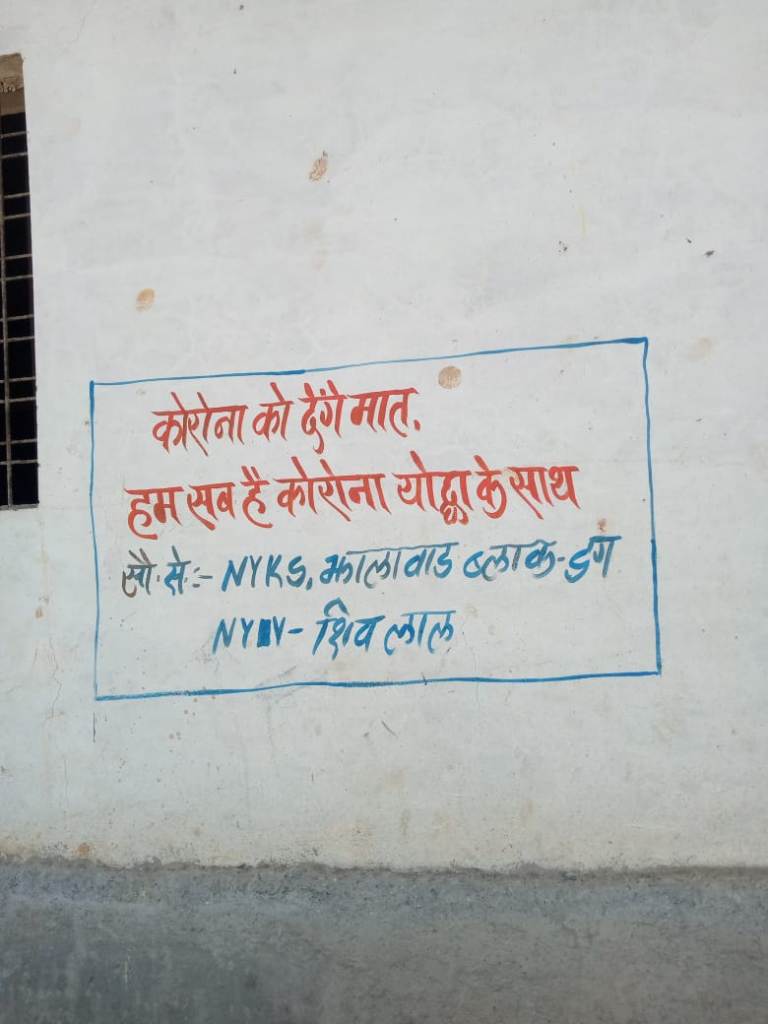 कोरोना को देंगै मात.
हम सब है कोरोना योद्धा के साथ
सौ. से.:- NYKS, झालावाड ब्लाक- डग
- शिव लाल